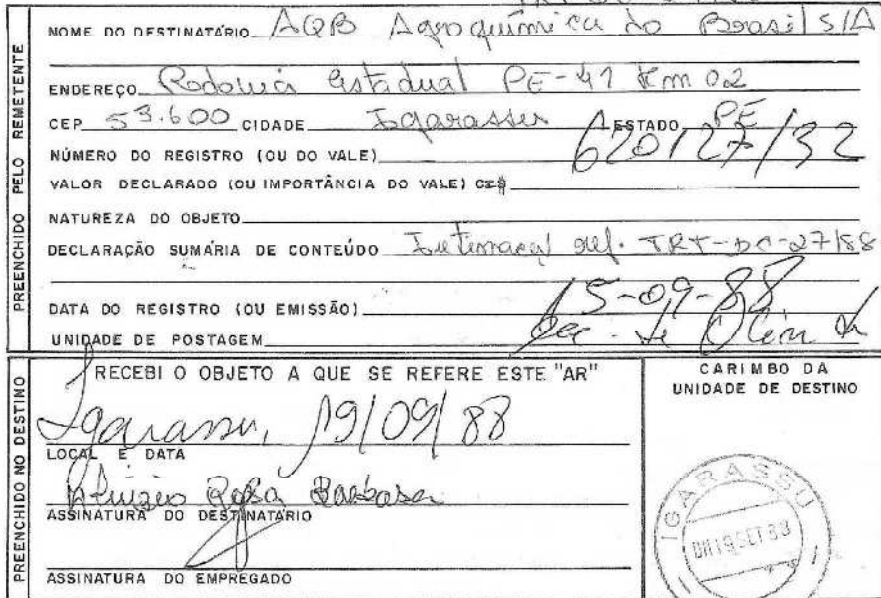 NOME DO DESTINATÁRIO AQB Agroquímica do Brasil S/A
ENDEREÇO Rodovia Estadual PE-41 Km 02
CEP 53.600 CIDADE Igarassu ESTADO PE
NÚMERO DO REGISTRO (OU DO VALE) 620127/32
VALOR DECLARADO (OU IMPORTÂNCIA DO VALE) CZ$
NATUREZA DO OBJETO
DECLARAÇÃO SUMÁRIA DE CONTEÚDO Intimação ref. TRT-DC-27/88
DATA DO REGISTRO (OU EMISSÃO) 15-09-88
UNIDADE DE POSTAGEM
PREENCHIDO PELO REMETENTE
RECEBI O OBJETO A QUE SE REFERE ESTE "AR"
Igarassu, 19/09/88
LOCAL E DATA
Aluizio Rosa Barbosa
ASSINATURA DO DESTINATÁRIO
ASSINATURA DO EMPREGADO
PREENCHIDO NO DESTINO
CARIMBO DA
UNIDADE DE DESTINO
IGARASSU
19 SET 88